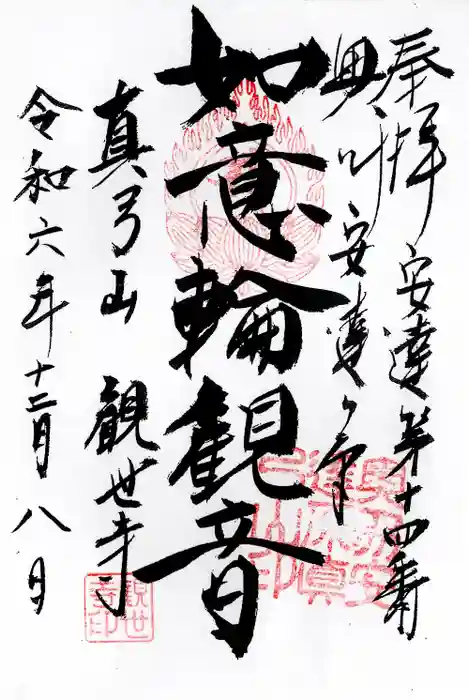 奉拝 安達第十四番
奥州安達ヶ原
如意輪観音
真弓山 観世寺
令和六年十二月八日
観世寺印